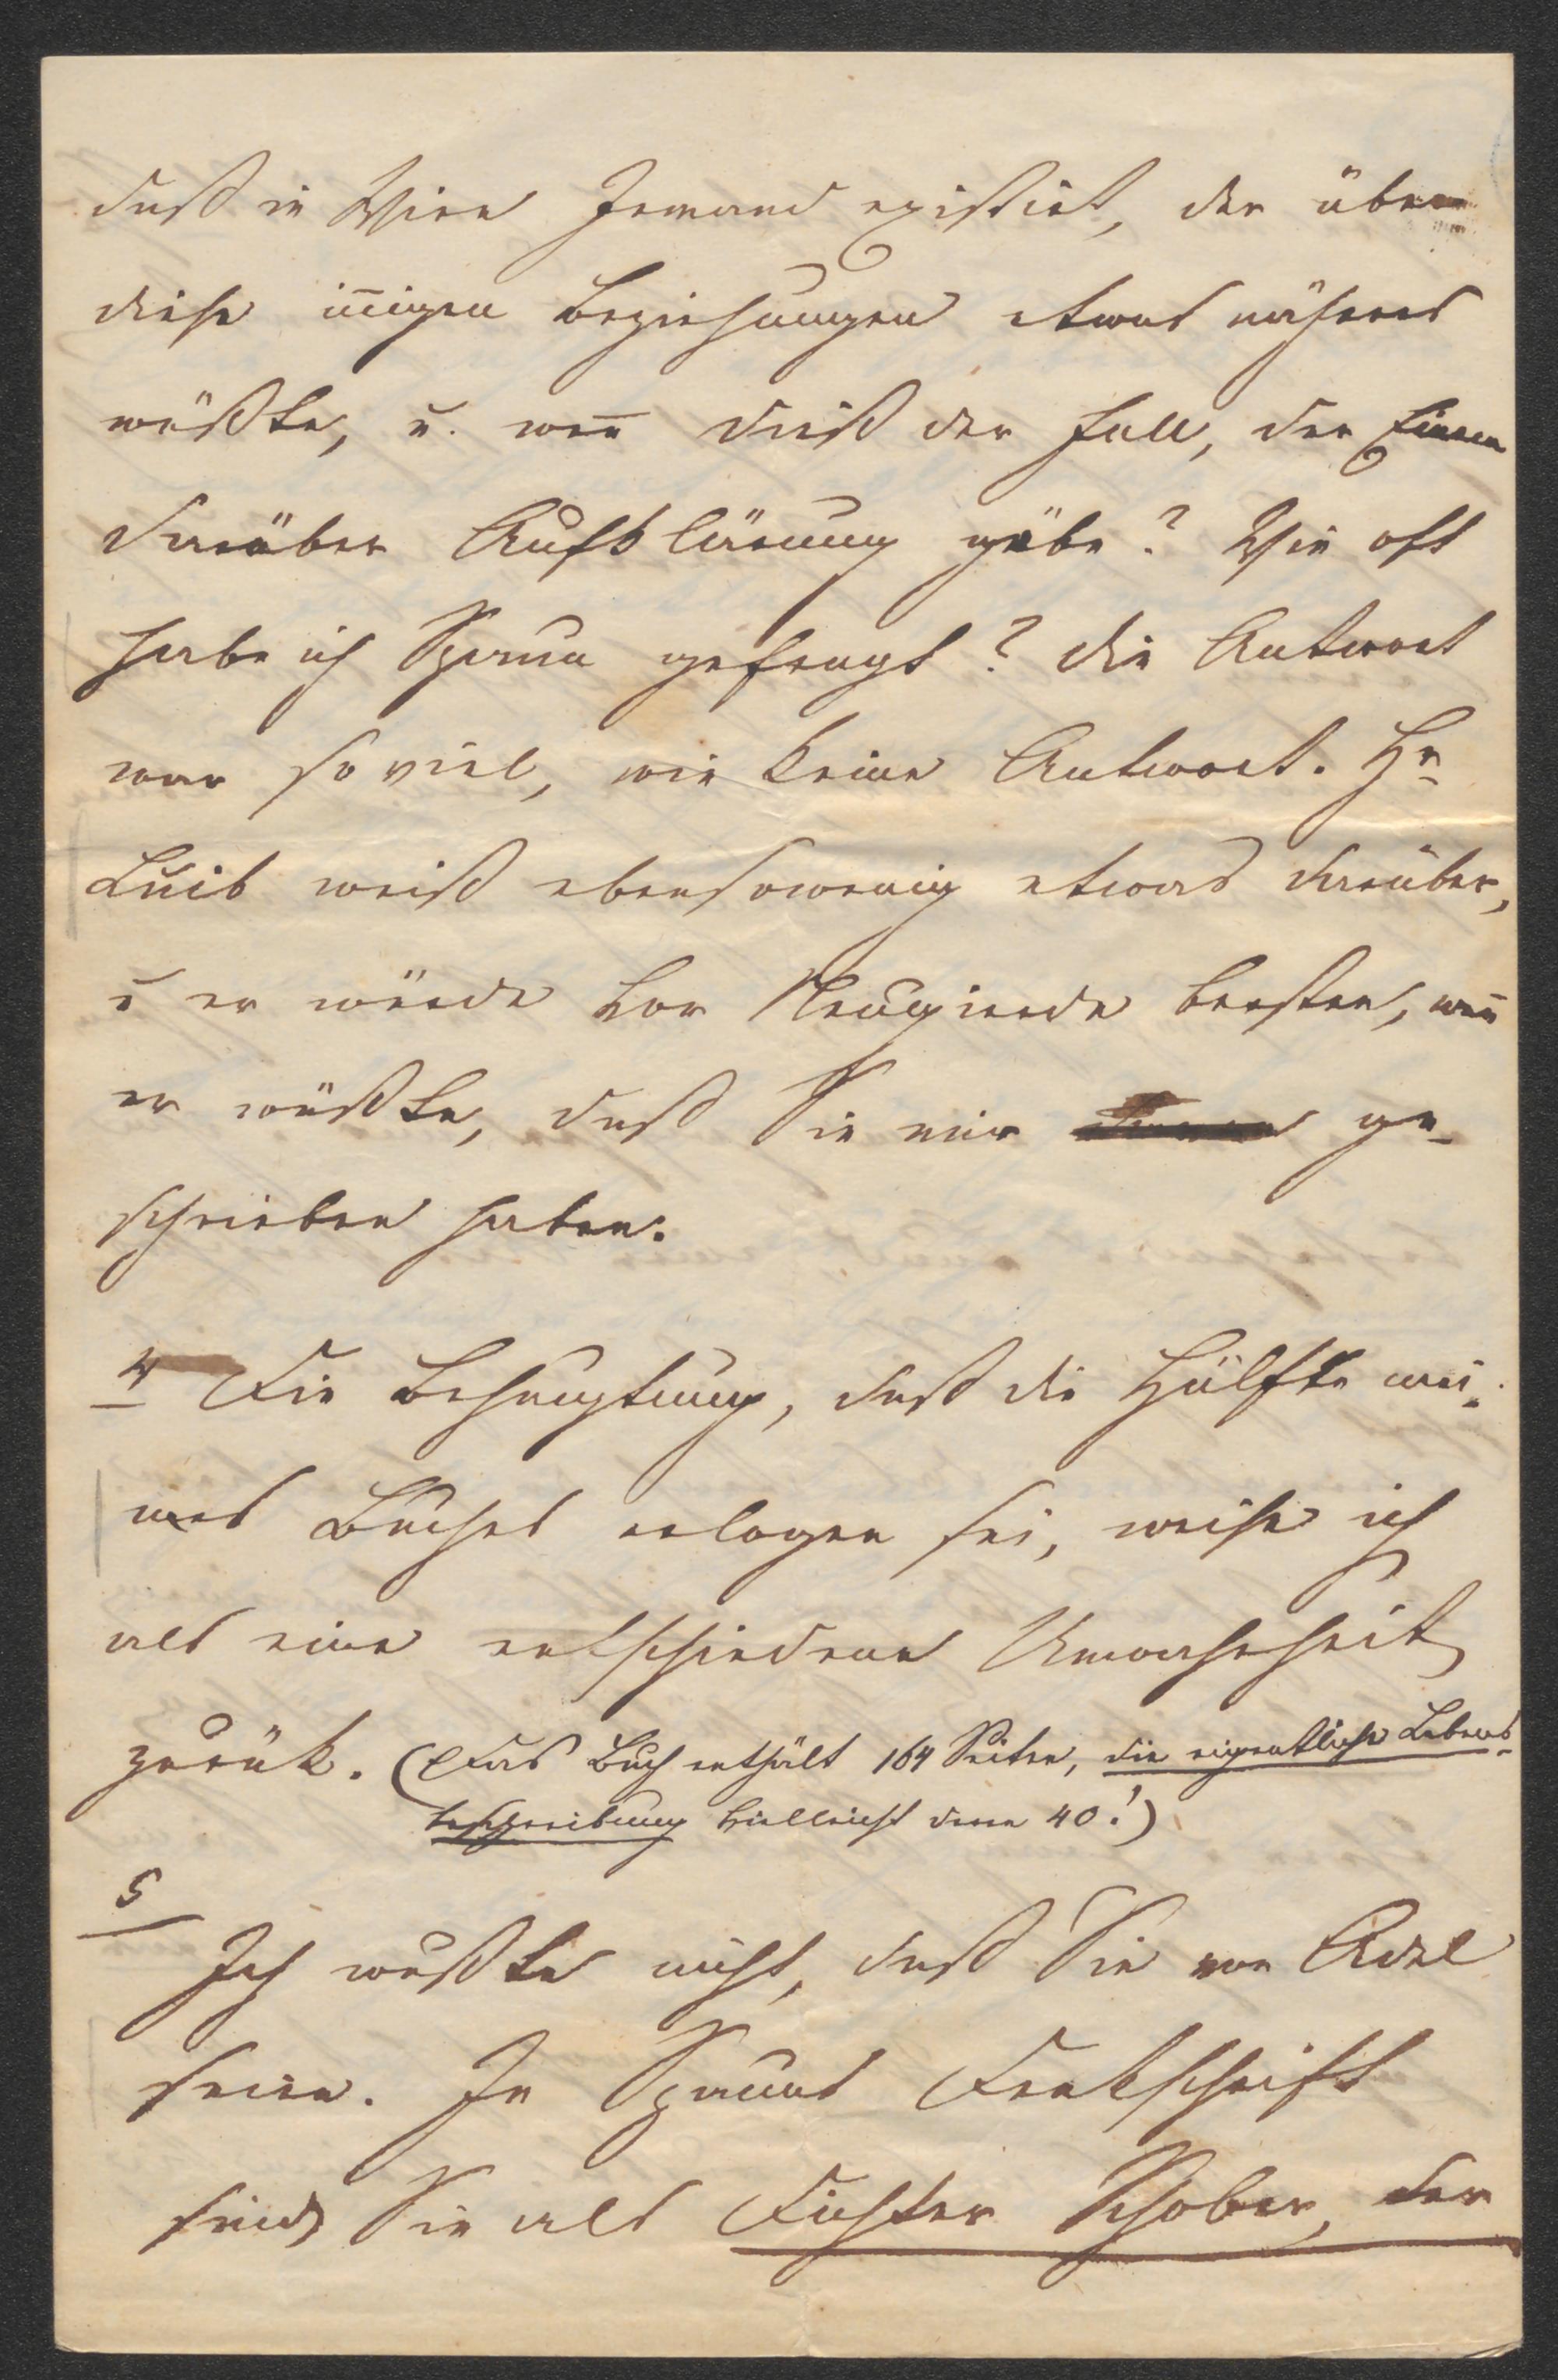 daß in Wien Jemand existirt, der über
diese iñigen Beziehungen etwas näheres
wüßte, u. weñ dieß der Fall, der Einem
darüber Aufklärung gäbe? Wie oft
habe ich Spaun gefragt? die Antwort
war so viel, wie keine Antwort. Hr
Luib weiß ebensowenig etwas darüber,
u er würde vor Neugierde bersten, weñ
er wüßte, daß Sie mir ge-
schrieben haben.
4 Die Behauptung, daß die Hälfte mei-
nes Buches erlogen sei, weise ich
als eine entschiedene Unwahrheit
zurük. (Das Buch enthält 164 Seiten, die eigentliche Lebens-
beschreibung vielleicht deren 40!)
5
Ich wußte nicht, daß Sie von Adel
seien. In Spauns Denkschrift
sind Sie als Dichter Schober, der